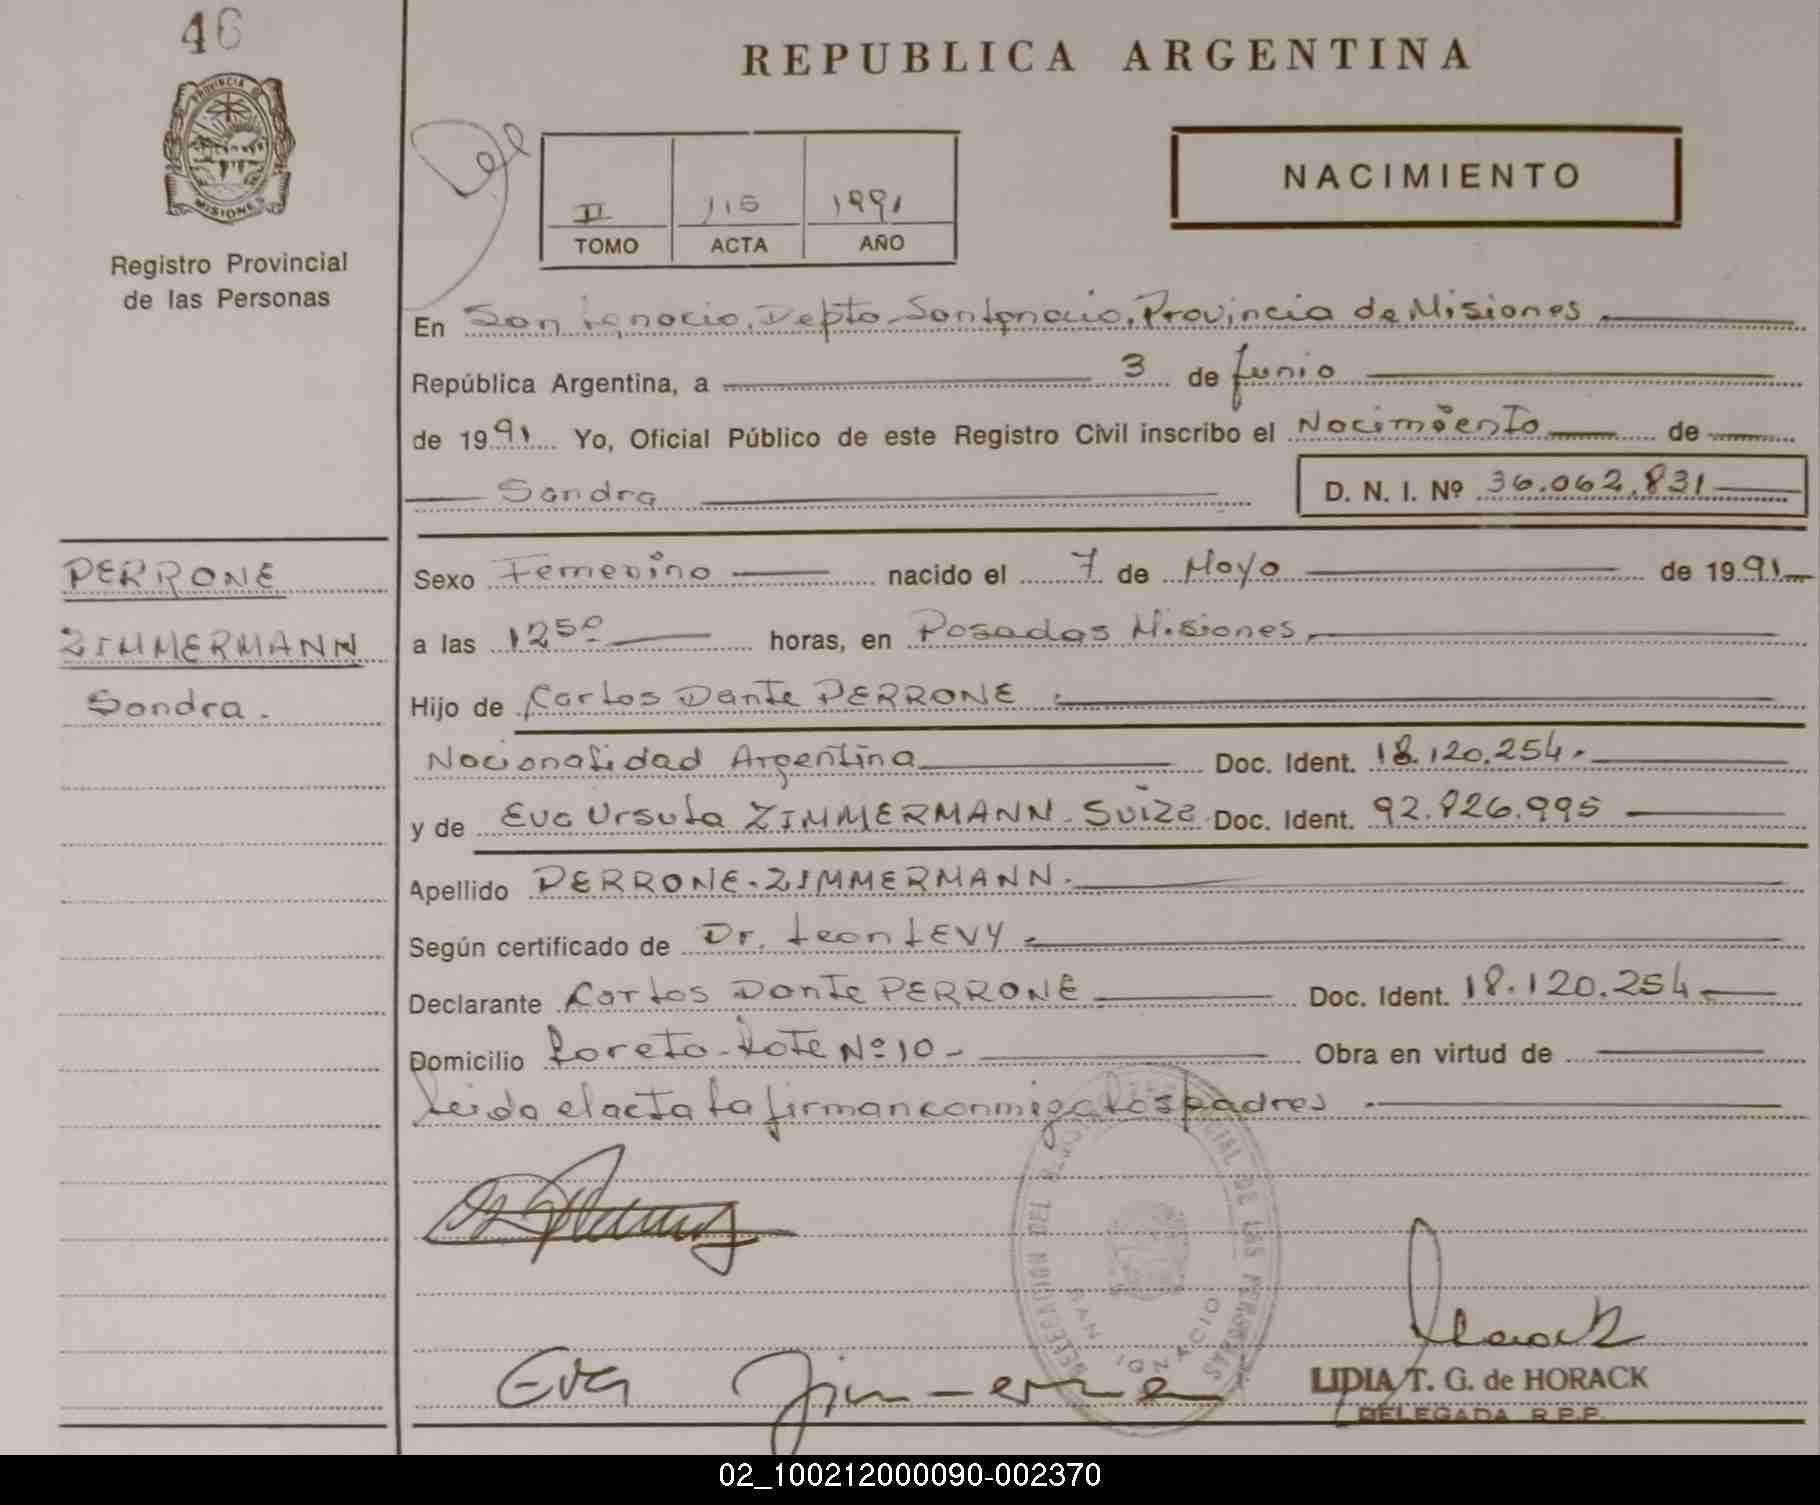 46
REPUBLICA ARGENTINA
PROVINCIA D
MISIONES
Registro Provincial
de las Personas
NACIMIENTO
II 115 1991
TOMO ACTA AÑO
En San Ignacio, Depto. San Ignacio, Provincia de Misiones
República Argentina, a 3 de Junio
de 1991 Yo, Oficial Público de este Registro Civil inscribo el Nacimiento de
Sandra D. N. I. Nº 36.062.831
PERRONE
ZIMMERMANN
Sandra.
Sexo Femenino nacido el 7 de Mayo de 1991
a las 12⁵⁰ horas, en Posadas Misiones
Hijo de Carlos Dante PERRONE
Nacionalidad Argentina Doc. Ident. 18.120.254.
y de Eva Ursula ZIMMERMANN. Suiza Doc. Ident. 92.826.995
Apellido PERRONE-ZIMMERMANN.
Según certificado de Dr. Leon LEVY
Declarante Carlos Dante PERRONE Doc. Ident. 18.120.254
Domicilio Loreto-Lote Nº 10- Obra en virtud de
Leida el acta la firman conmigo los padres
DELEGACION DEL REGISTRO PROVINCIAL DE LAS PERSONAS
SAN IGNACIO
Eva Zimmermann
Horack
LIDIA T. G. de HORACK
DELEGADA R.P.P.
02_100212000090-002370